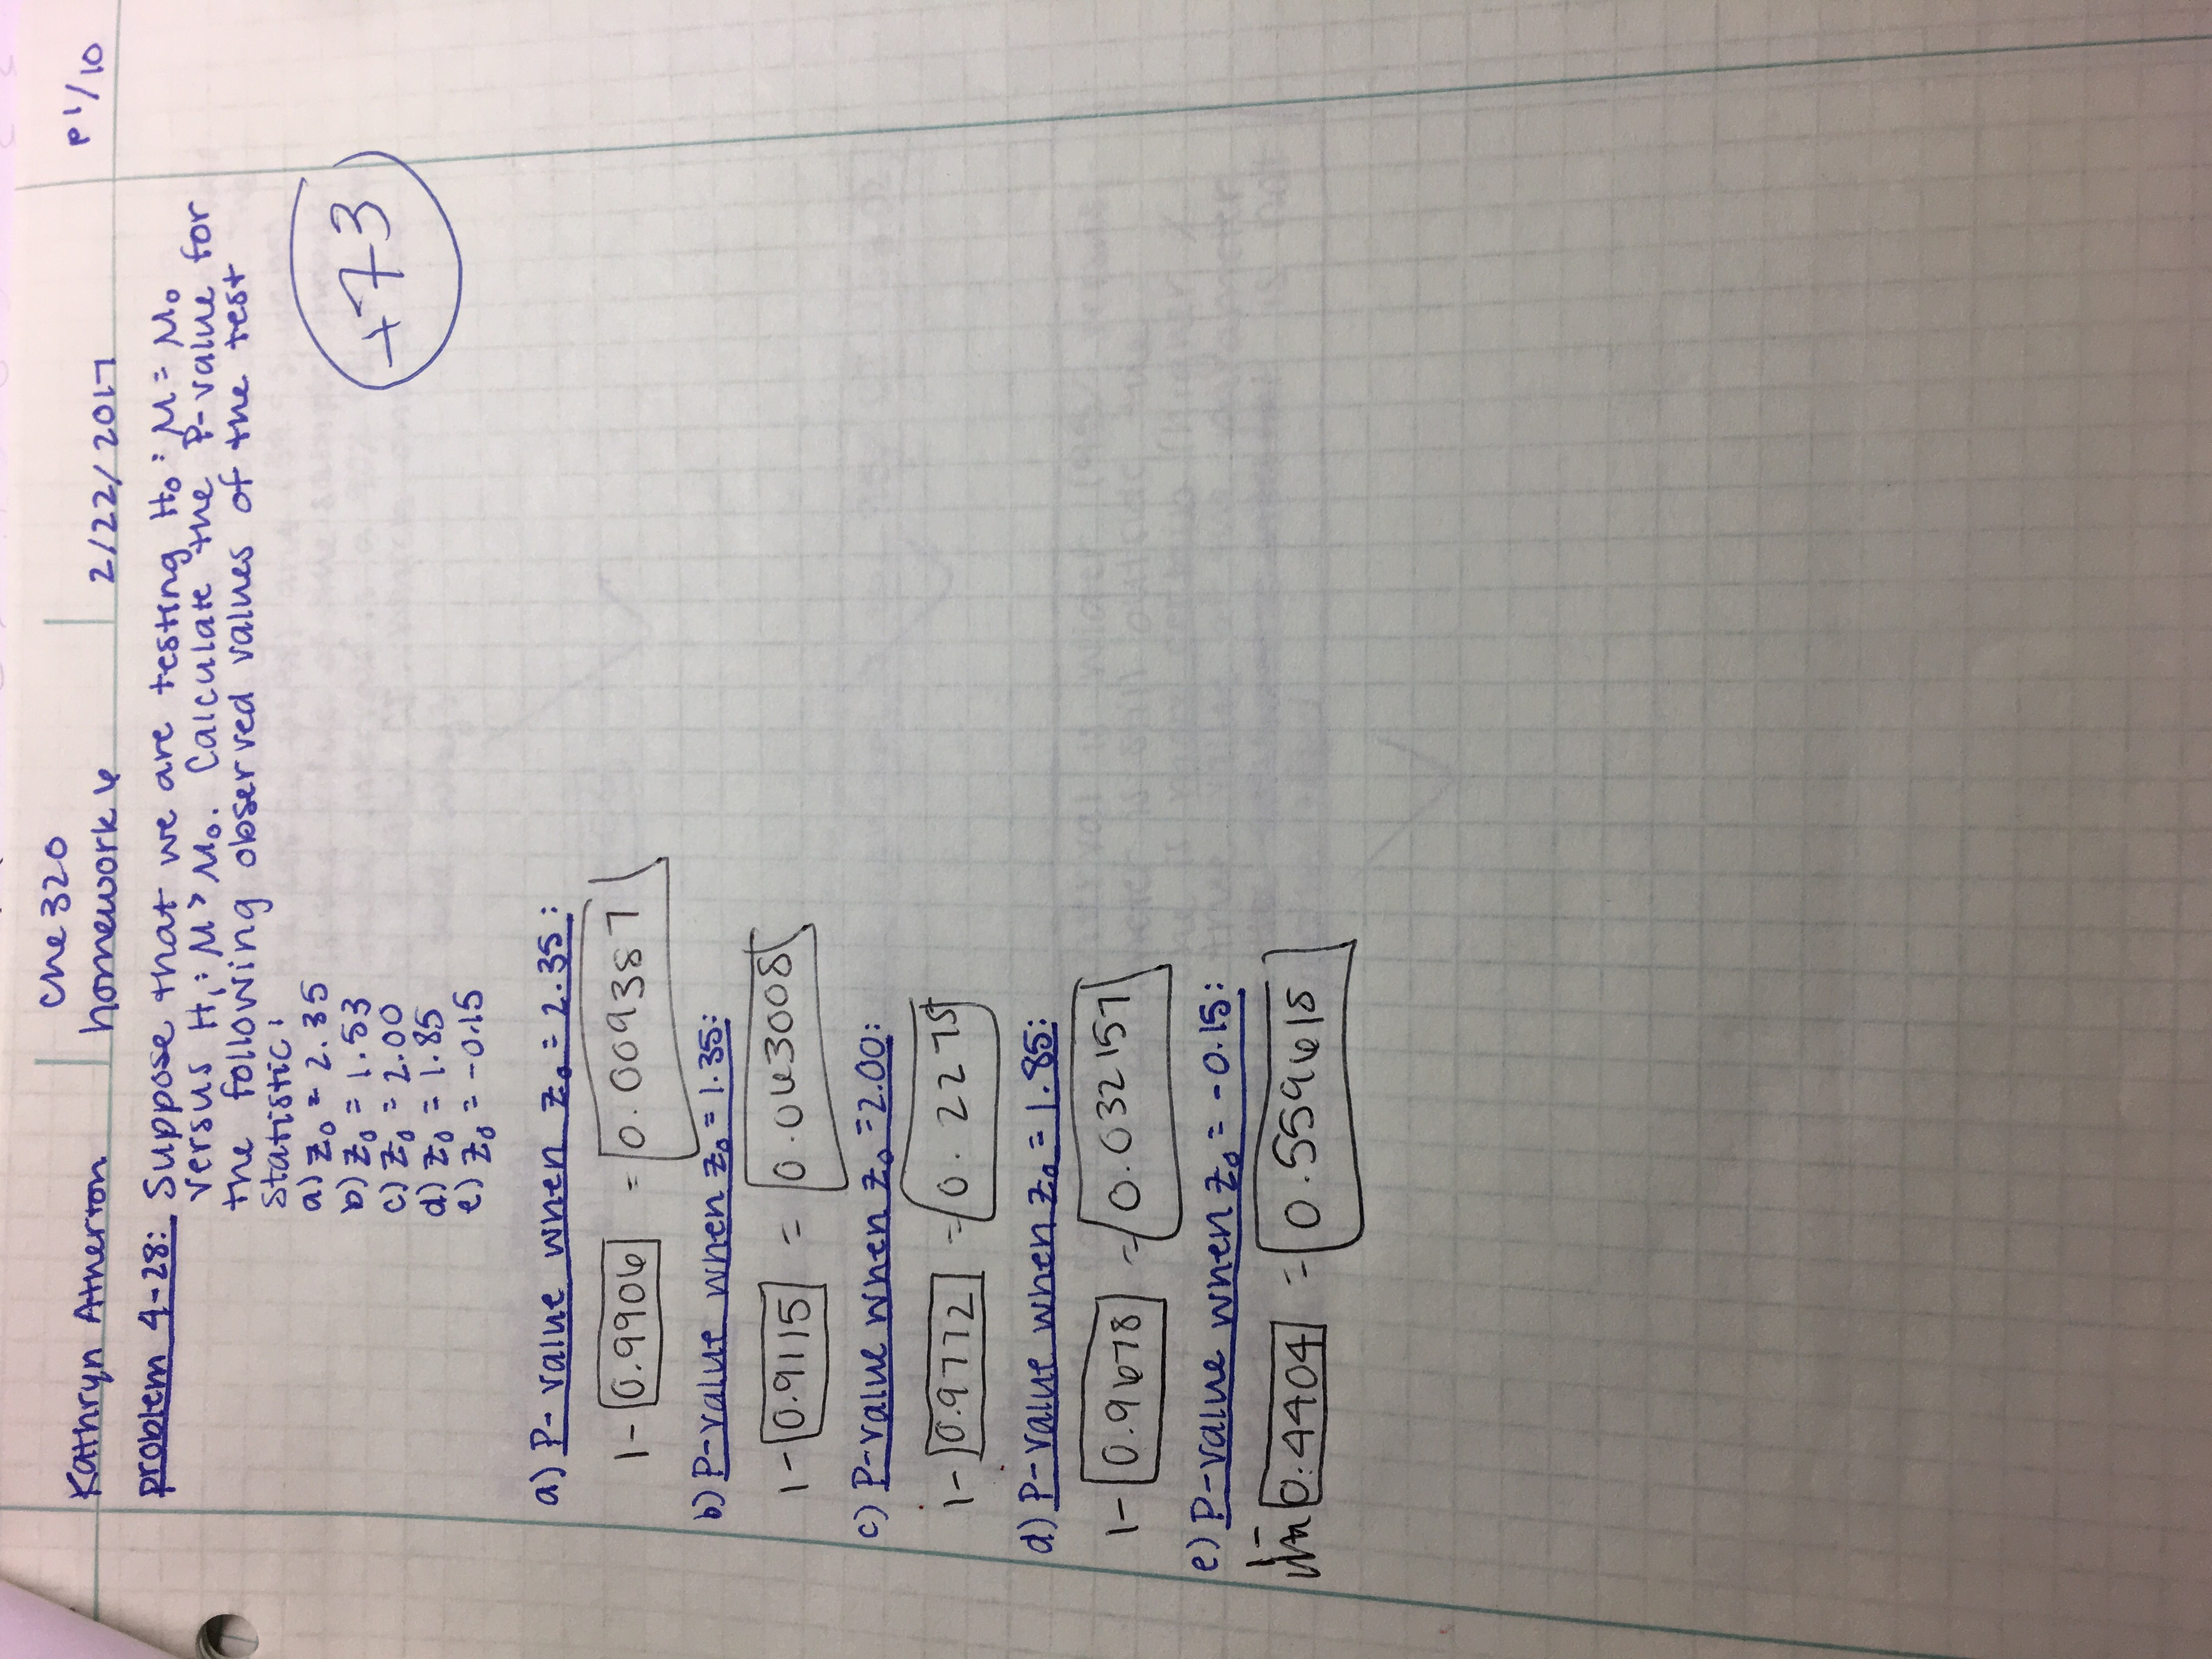 Kathryn Atherton
Che 320
homework 6
2/22/2017
P 1/10
problem 4-28: Suppose that we are testing H₀: μ = μ₀
versus H₁: μ > μ₀. Calculate the P-value for
the following observed values of the test
statistic:
a) z₀ = 2.35
b) z₀ = 1.53
c) z₀ = 2.00
d) z₀ = 1.85
e) z₀ = -0.15
+73
a) P-value when z₀ = 2.35:
1- 0.9906 = 0.009387
b) P-value when z₀ = 1.35:
1- 0.9115 = 0.063008
c) P-value when z₀ = 2.00:
1- 0.9772 = 0.2275
d) P-value when z₀ = 1.85:
1- 0.9678 = 0.032157
e) P-value when z₀ = -0.15:
1- 0.4404 = 0.559618